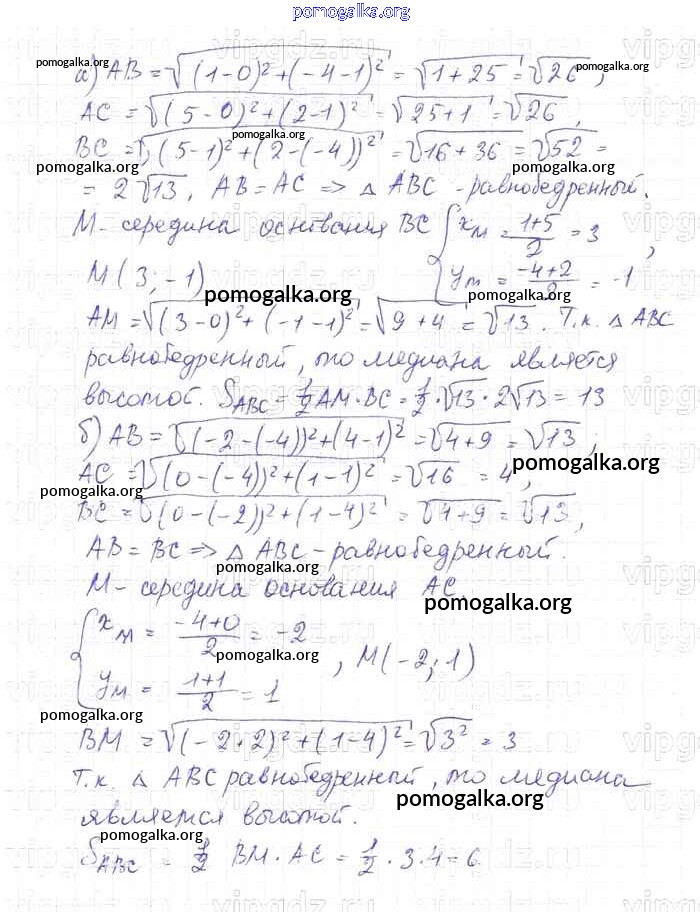 pomogalka.org
а) AB = √((1-0)²+(-4-1)²) = √(1+25) = √26 ;
AC = √((5-0)²+(2-1)²) = √(25+1) = √26,
pomogalka.org
BC = √((5-1)²+(2-(-4))²) = √(16+36) = √52 =
pomogalka.org
= 2√13, AB = AC => △ ABC - равнобедренный.
M - середина основания BC { x_M = (1+5)/2 = 3
pomogalka.org
y_M = (-4+2)/2 = -1 ,
M(3; -1)
pomogalka.org pomogalka.org
AM = √((3-0)²+(-1-1)²) = √(9+4) = √13. Т.к. △ ABC
равнобедренный, то медиана является
высотой. S_ABC = 1/2 AM · BC = 1/2 · √13 · 2√13 = 13
pomogalka.org
б) AB = √((-2-(-4))²+(4-1)²) = √(4+9) = √13 ;
AC = √((0-(-4))²+(1-1)²) = √16 = 4,
pomogalka.org
pomogalka.org
BC = √((0-(-2))²+(1-4)²) = √(4+9) = √13,
AB = BC => △ ABC - равнобедренный.
pomogalka.org
M - середина основания AC.
pomogalka.org
{ x_M = (-4+0)/2 = -2
pomogalka.org
y_M = (1+1)/2 = 1 , M(-2; 1)
pomogalka.org
BM = √((-2+2)²+(1-4)²) = √3² = 3
Т.к. △ ABC равнобедренный, то медиана
pomogalka.org
является высотой.
pomogalka.org
S_ABC = 1/2 BM · AC = 1/2 · 3 · 4 = 6